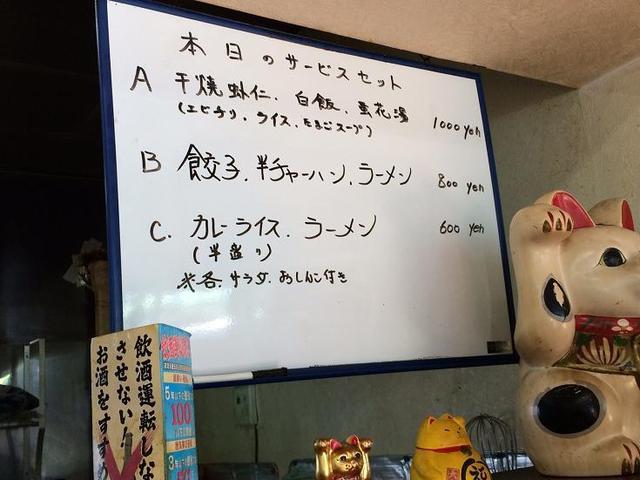 本日のサービスセット
A 干焼虾仁、白飯、蛋花湯 1000 yen
(エビチリ、ライス、たまごスープ)
B 餃子、半チャーハン、ラーメン 800 yen
C. カレーライス、ラーメン 600 yen
(半盛り)
※各、サラダ、おしんこ付き
飲酒運転しな
させない!
お酒をすすめ
5年以下
100
3年以下